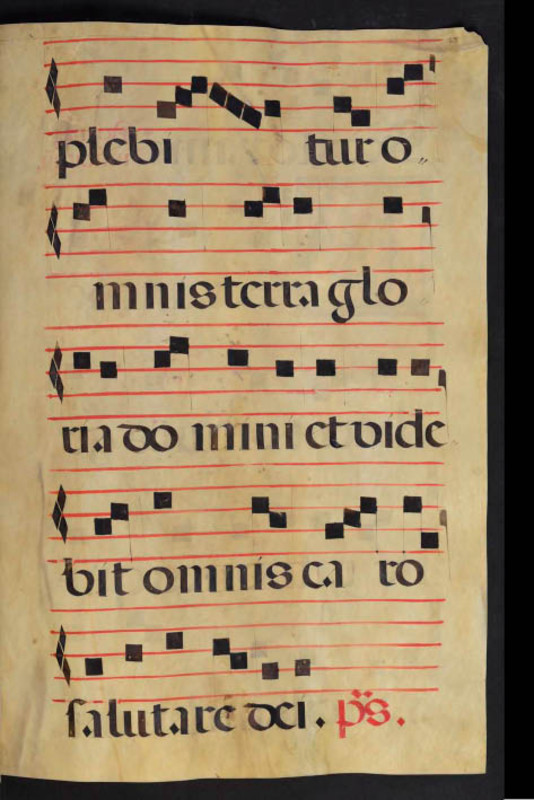 plebi tur o
mnis terra glo
ria do mini et vide
bit omnis ca ro
salutare dei. ps.